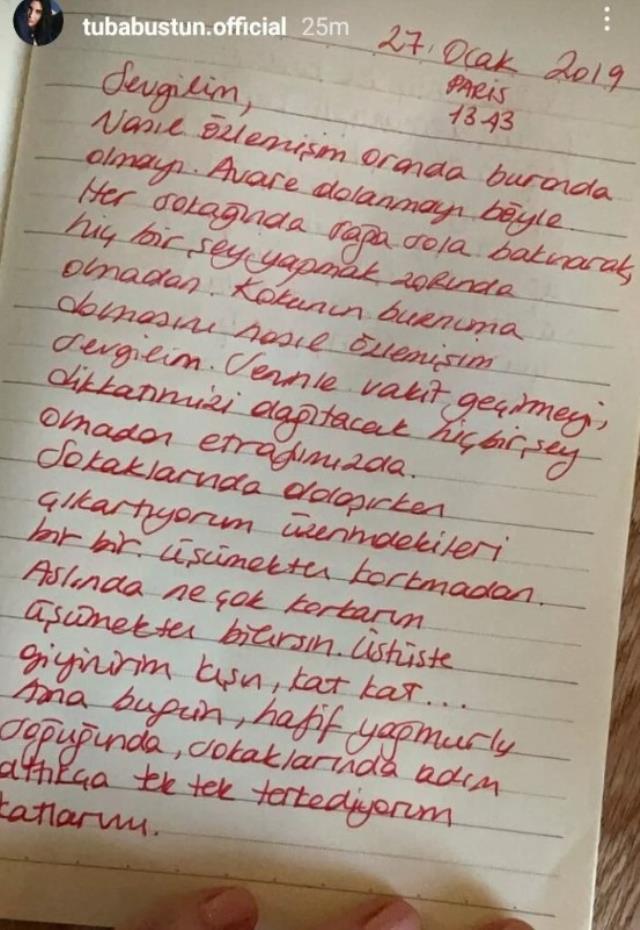 tubabustun.official 25m
27. Ocak 2019
PARIS
13.43
Sevgilim,
Nasıl özlemişim oranda buranda
olmayı. Avare dolanmayı böyle.
Her sokağında sağa sola bakınarak,
hiç bir şey yapmak zorunda
olmadan. Kokunun burnuma
dolmasını nasıl özlemişim
sevgilim. Seninle vakit geçirmeyi,
dikkatimizi dağıtacak hiçbir şey
olmadan etrafımızda.
Sokaklarında dolaşırken
çıkartıyorum üzerimdekileri
bir bir. üşümekten korkmadan.
Aslında ne çok korkarım
üşümekten bilirsin. Üstüste
giyinirim kışın, kat kat...
Ama bugün, hafif yağmurlu
soğuğunda, sokaklarında adım
attıkça tek tek terkediyorum
katlarımı.